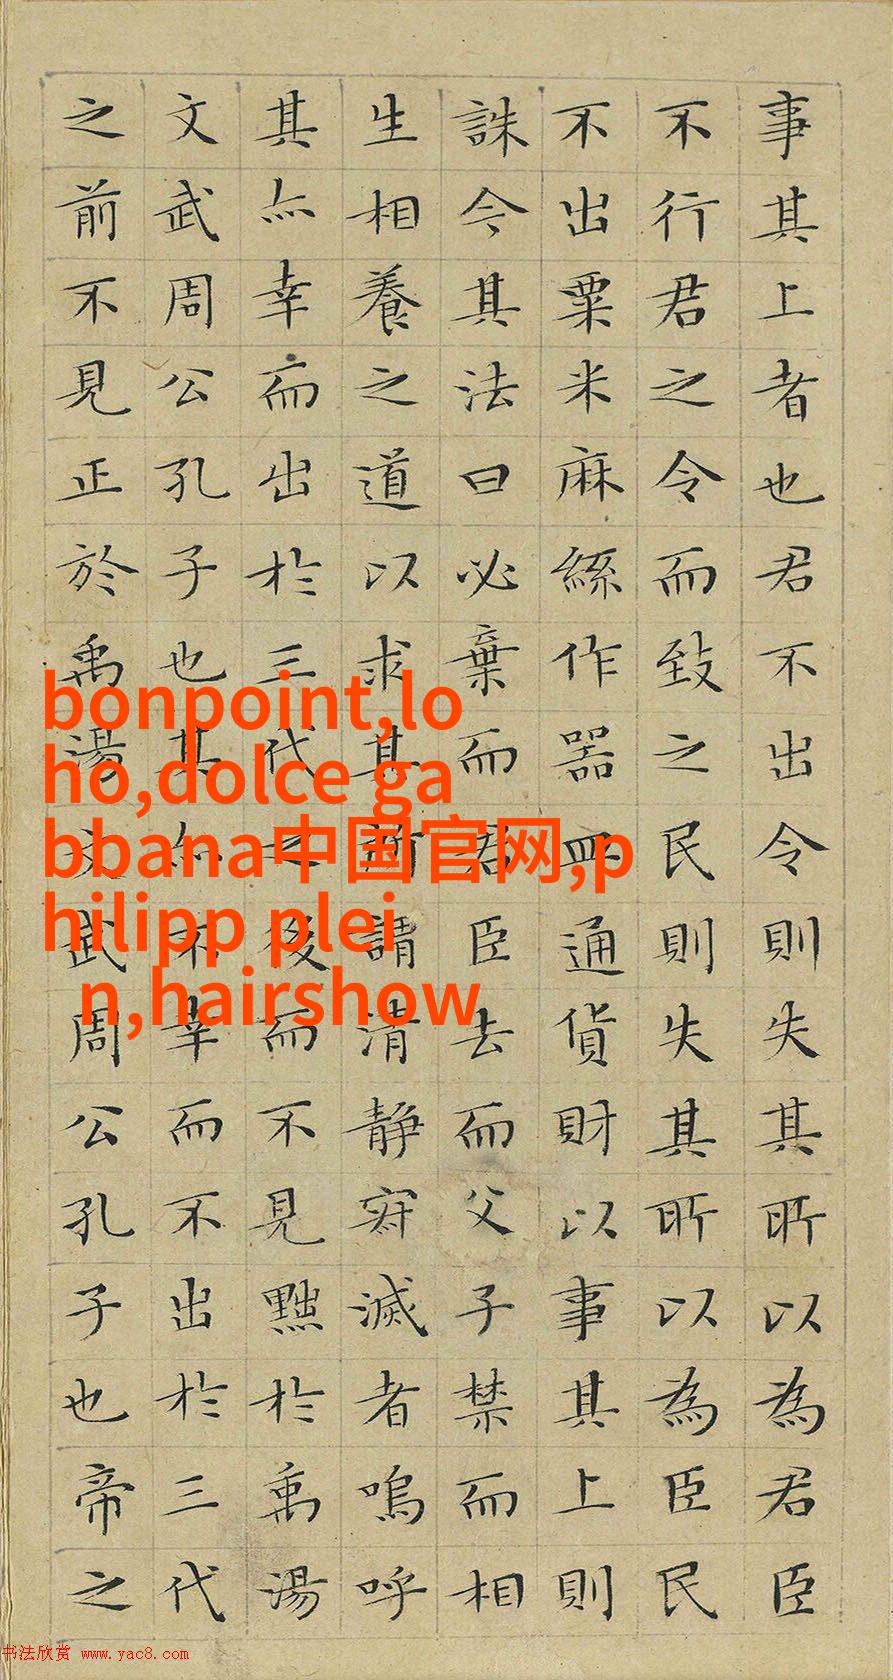 事其上者也君不出令則失其所以為君臣
不行君之令而致之民則失其所以為臣民
不出粟米麻絲作器皿通貨財以事其上則
誅今其法曰必棄而君臣去而父子禁而相
生相養之道以求其所謂清静寂滅者嗚呼
其亦幸而出於三代之後而不見黜於禹湯
文武周公孔子也其亦不幸而不出於三代
之前不見正於禹湯文武周公孔子也帝之
bonpoint,lo
ho,dolce ga
bbana中国官网,p
hilipp plei
n,hairshow
书法欣赏 www.yac8.com